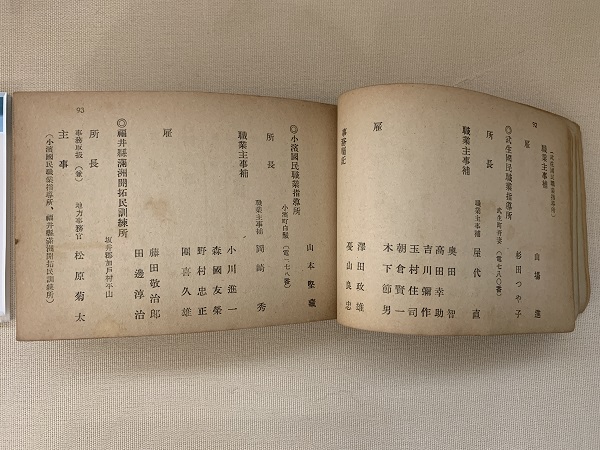 92
職業主事補
雇 杉田つや子
◎武生國民職業指導所
武生町 (電七八〇番)
所長 職業主事補 屋代直
職業主事補 奥田智
高田幸助
吉川彌作
玉村住司
朝倉賢一
雇 木下節男
澤田政雄
憂山良忠
山本堅
◎小濱國民職業指導所
小濱町白鬚 (電一七八番)
所長 職業主事補 岡崎秀
職業主事補 小川進一
森國友榮
野村忠正
雇 團喜久雄
藤田敬治郎
田邊淳治
◎福井縣滿洲開拓民訓練所
坂井郡加戸村平山
所長
事務取扱(兼) 地方事務官 松原菊太
主事
(小濱國民職業指導所、福井縣滿洲開拓民訓練所)
93